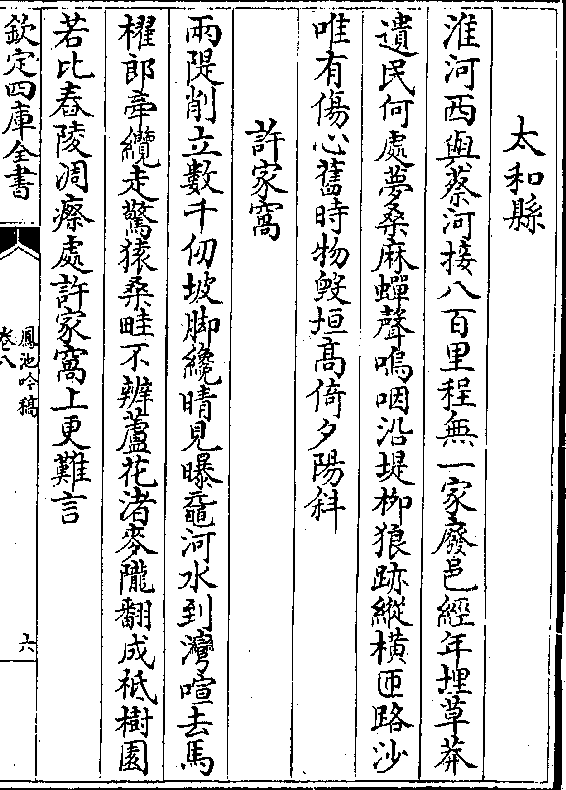 太和縣
淮河西與蔡河接八百里程無一家廢邑經年埋草莽
遺民何處夢桑麻蟬聲嗚咽沿堤柳狼跡縱橫匝路沙
唯有傷心舊時物毀垣髙倚夕陽斜
許家窩
兩隄削立數千仭坡脚纔晴見曝黿河水到灣喧去馬
櫂郎牽纜走驚猿桑畦不辨蘆花渚麥隴翻成秪樹園
若比舂陵凋瘵處許家窩上更難言
欽定四庫全書
鳳池吟稿
卷八
六